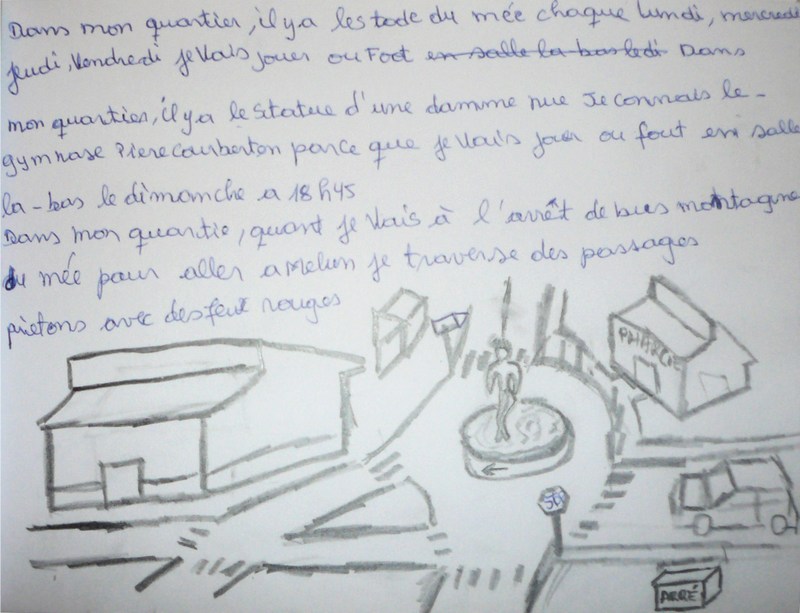 Dans mon quartier, il y a les tade du mée chaque lundi, mercredi
jeudi, Vendredi je Vais jouer ou Foot en salle la bas ledi Dans
mon quartier, il y a le Statue d'une damme nue Je connais le -
gymnase Piere courberton parce que je Vais jouer ou fout en salle
la-bas le dimanche a 18h45
Dans mon quartie, quant je Vais à l'arrêt de bus montagne
du mée pour aller a Melun je traverse des passages
piétons avec des feux rouges
PHARCIE
50
ARRÉ